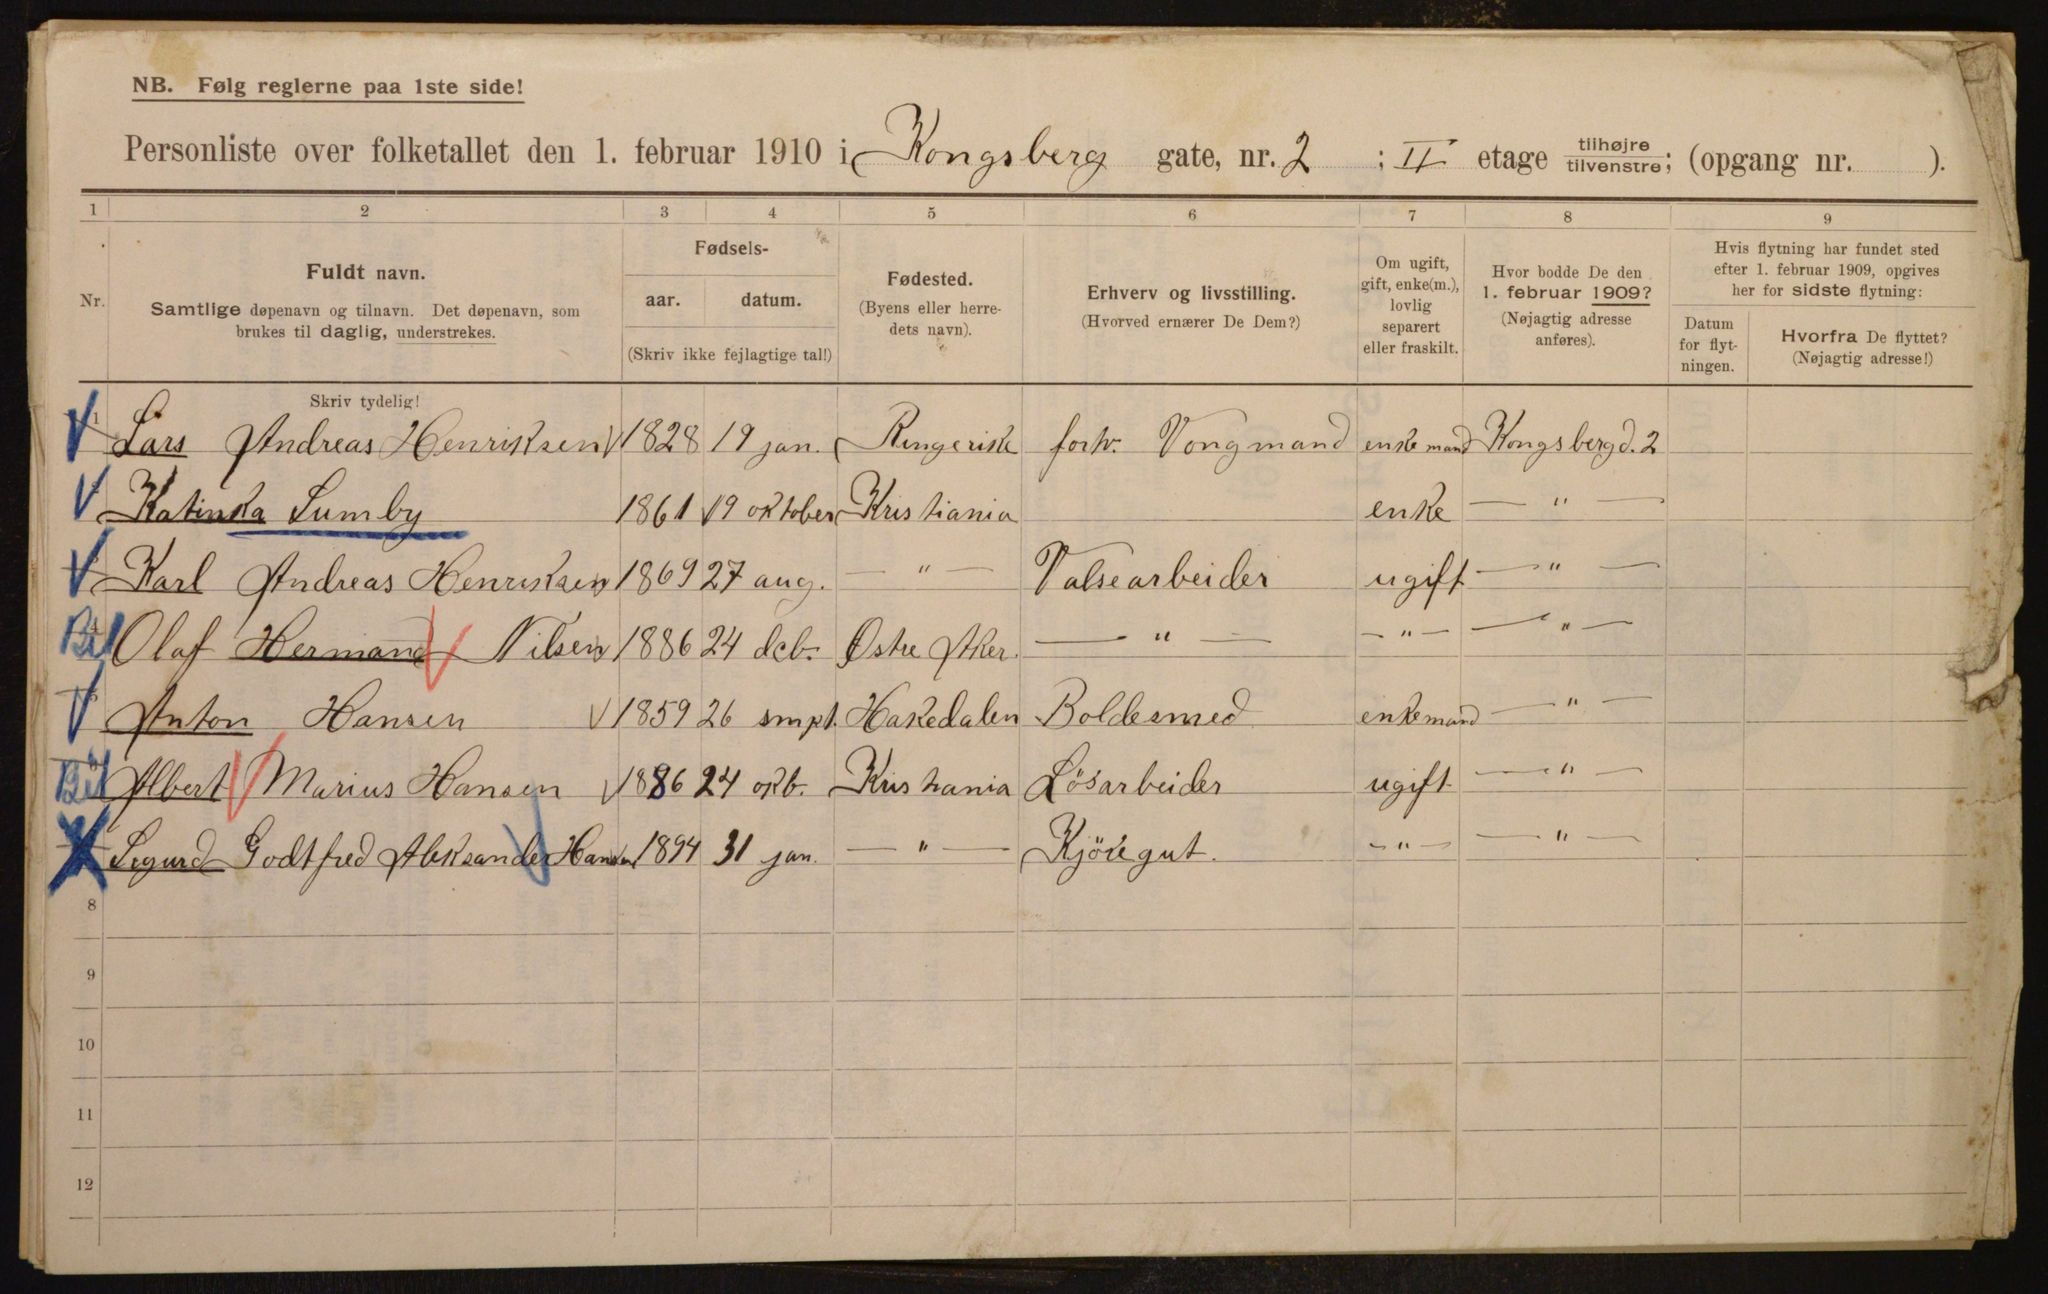 NB. Følg reglerne paa 1ste side!
Personliste over folketallet den 1. februar 1910 i Kongsberg gate, nr. 2 ; II etage tilhøjre tilvenstre; (opgang nr. ).
1 2 3 4 5 6 7 8 9
Nr.
Fuldt navn.
Samtlige døpenavn og tilnavn. Det døpenavn, som
brukes til daglig, understrekes.
Fødsels-
aar. datum.
(Skriv ikke fejlagtige tal!)
Fødested.
(Byens eller herre-
dets navn).
Erhverv og livsstilling.
(Hvorved ernærer De Dem?)
Om ugift,
gift, enke(m.),
lovlig
separert
eller fraskilt.
Hvor bodde De den
1. februar 1909?
(Nøjagtig adresse
anføres).
Hvis flytning har fundet sted
efter 1. februar 1909, opgives
her for sidste flytning:
Datum
for flyt-
ningen.
Hvorfra De flyttet?
(Nøjagtig adresse!)
Skriv tydelig!
1 Lars Andreas Henriksen 1828 19 jan. Ringerike forh. Vongmand enkemand Kongsbergd. 2
Katinka Lumby 1861 19 oktober Kristiania enke — " —
Karl Andreas Henriksen 1869 27 aug. — " — Valsearbeider ugift — " —
4 Olaf Hermand Nilsen 1886 24 dcb. Østre Aker — " — — " — — " —
Anton Hansen 1859 26 smpt. Hakedalen Boldesmed enkemand — " —
Albert Marius Hansen 1886 24 okb. Kristiania Lösarbeider ugift — " —
Sigurd Godtfred Aleksander Hansen 1894 31 jan. — " — Kjöregut. — " — — " —
8
9
10
11
12